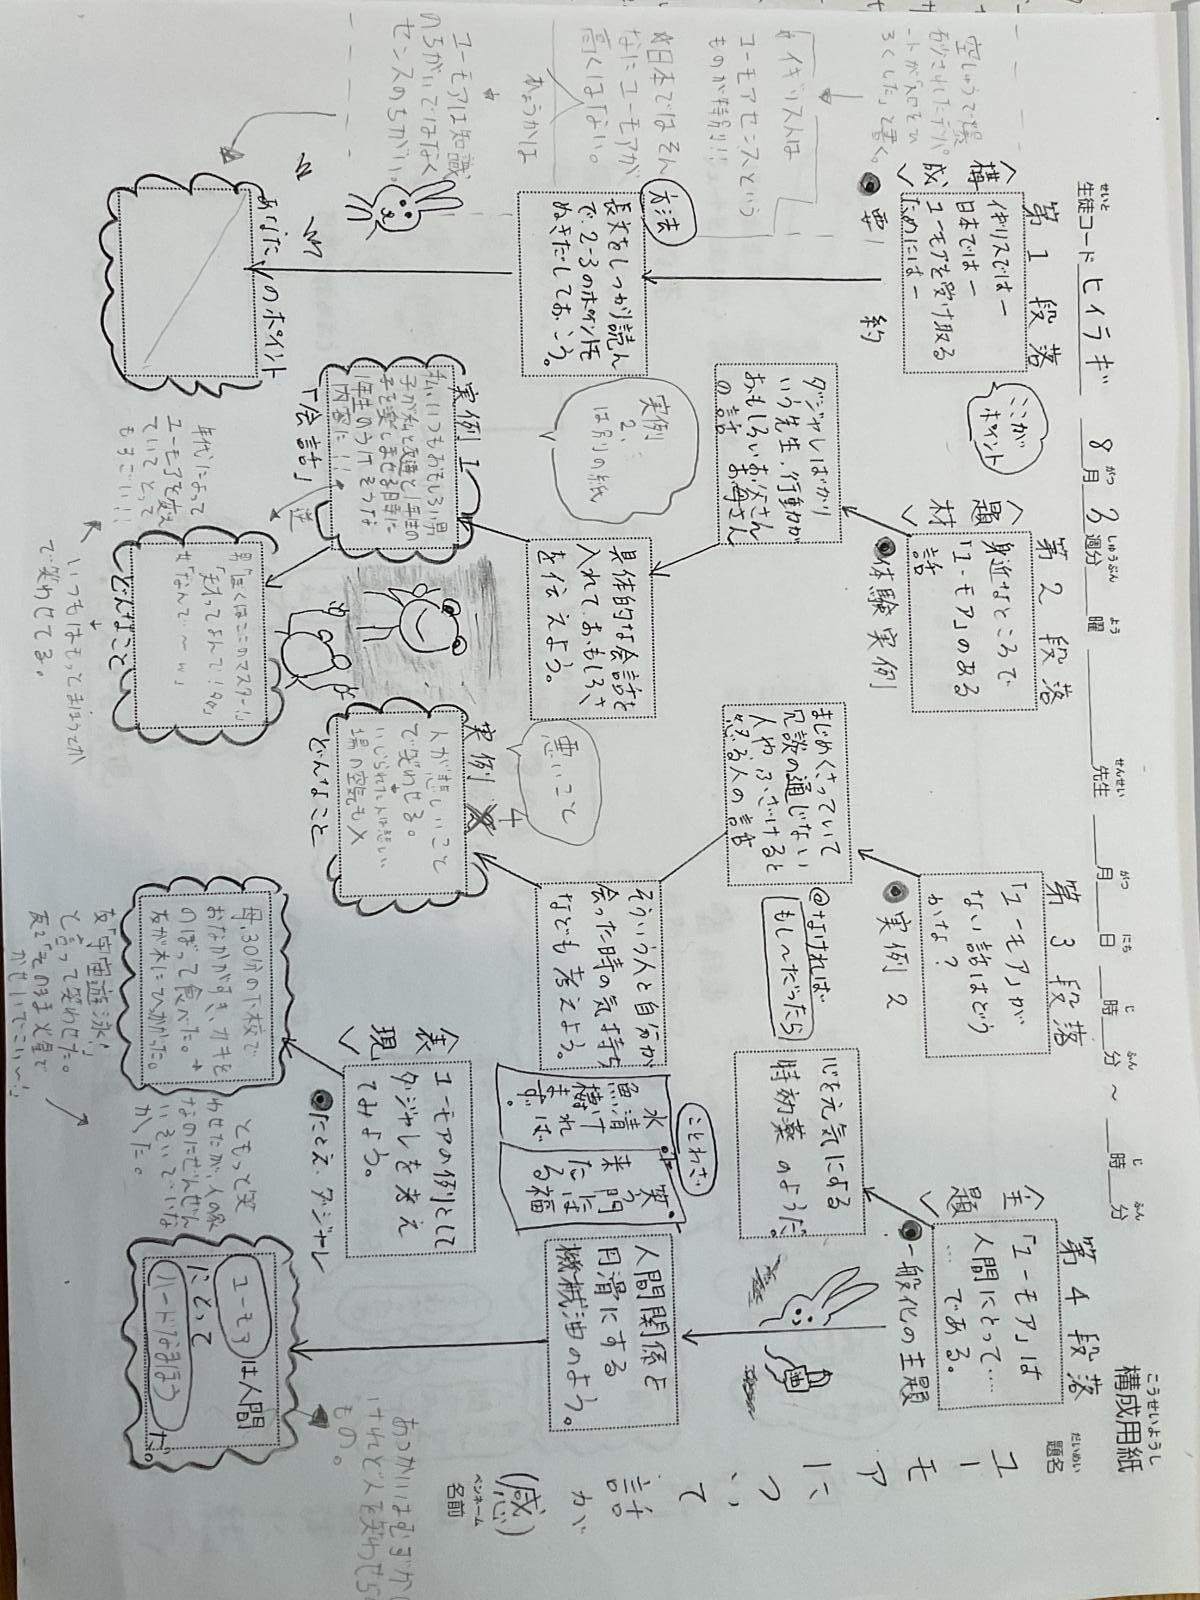 構成用紙
こうせいようし
題名
だいめい
ユーモアについて
話が(感)
ペンネーム
名前
生徒コード
せいと
ヒイラギ
8月3週分
がつ
しゅうぶん
曜
よう
先生
せんせい
月
がつ
日
にち
時
じ
分
ふん
～
時
じ
分
ふん
第1段落
構成
イギリスでは―
日本では―
ユーモアを受け取る
ためには―
●要約
ここが
ポイント
方法
長文をしっかり読ん
で、2-3のポイントを
ぬきだしておこう。
あなたのポイント
空しゅうで爆
破されたデパ
ートが「入口をひ
ろくした」と書く。
イギリス人は
ユーモアセンスという
ものが特別!!
日本ではそん
なにユーモアが
高くはない。
ユーモアは知識
のちがいではなく
センスのちがい。
第2段落
題材
身近なところで
「ユーモア」のある
話
●体験実例
ダジャレばかり
いう先生、行動が
おもしろいお父さん
お母さん
の話
具体的な会話を
入れておもしろさ
を伝えよう。
実例
2、
は別の紙
実例1
私いつもおもしろい男
子が私と友達と1年生の
子を楽しませる日時に
1年生のうけそうな
内容に!!!
「会話」
逆
男「ぼくはここのマスター!」
どんなこと
年代によって
ユーモアを変え
ていてとって
もすごい!!!
で笑わせてる。
第3段落
「ユーモア」が
ない話はどう
かな？
●実例2
@なければ
もし～だったら
まじめくさっていて
冗談の通じない
人や、ふざけると
怒る人の話
そういう人と自分が
会った時の気持ち
なども考えよう。
悪いこと
実例
4
人が悲しいこと
で笑わせる。
いじられた人は悲しい
場の空気も×
どんなこと
表現
ユーモアの例として
ダジャレを考え
てみよう。
●たとえ ダジャレ
母、30分の下校で
おなかがすき、カキを
のぼって食べた。→
友が木にひっかかった。
友「宇宙遊泳!」
と言って笑わせた。
友2「そのまま火星で
第4段落
主題
「ユーモア」は
人間にとって……
…である。
●一般化の主題
心を元気にする
特効薬のようだ。
ことわざ
水清ければ
魚棲まず。
笑う門には
福来たる
人間関係を
円滑にする
機械油のよう。
ユーモアは人間
にとって
ハードなまほう
だ。
あつかいはむずかし
けれど人を笑わせら
もの。